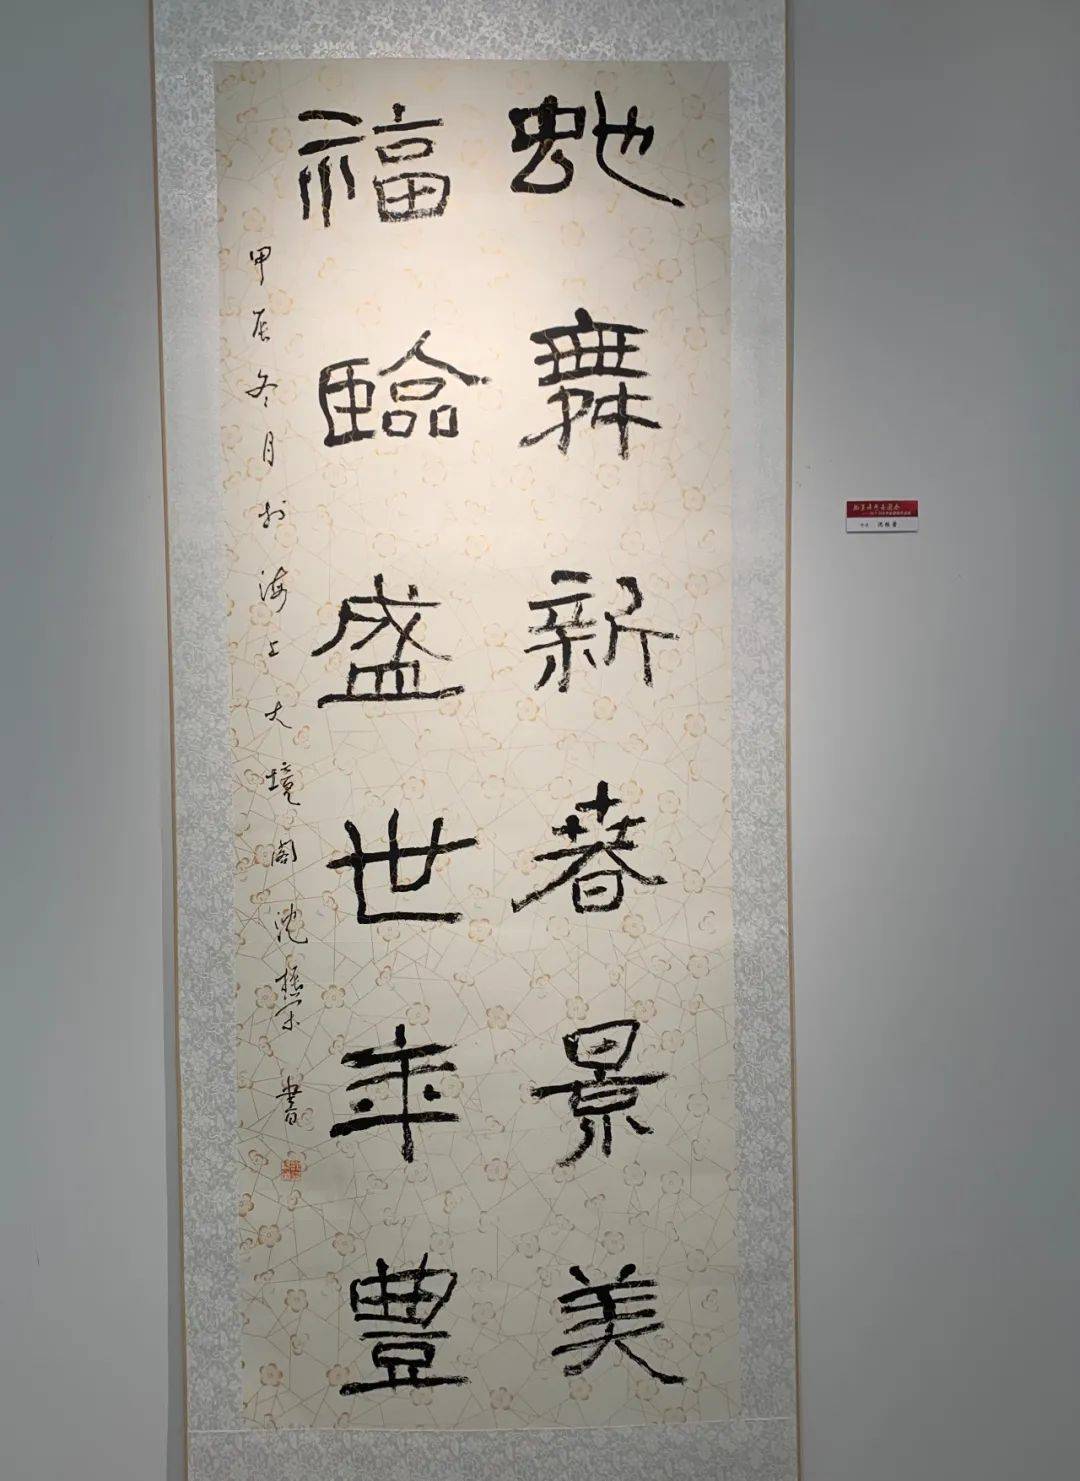 虵舞新春景美
福臨盛世年豐
甲辰冬月於海上大境阁沈振宗書